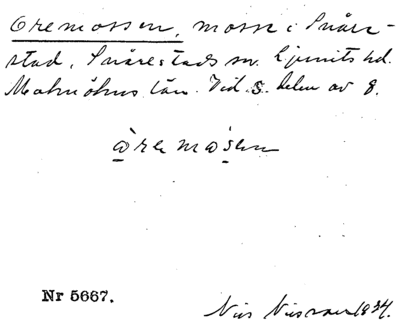 Oremossen, mosse i Snåre-
stad, Snårestads sn. Ljunits hd.
Malmöhus län. Vid S. delen av g.
òremåsenn
Nr 5667.
Nils Nilsson 1934.